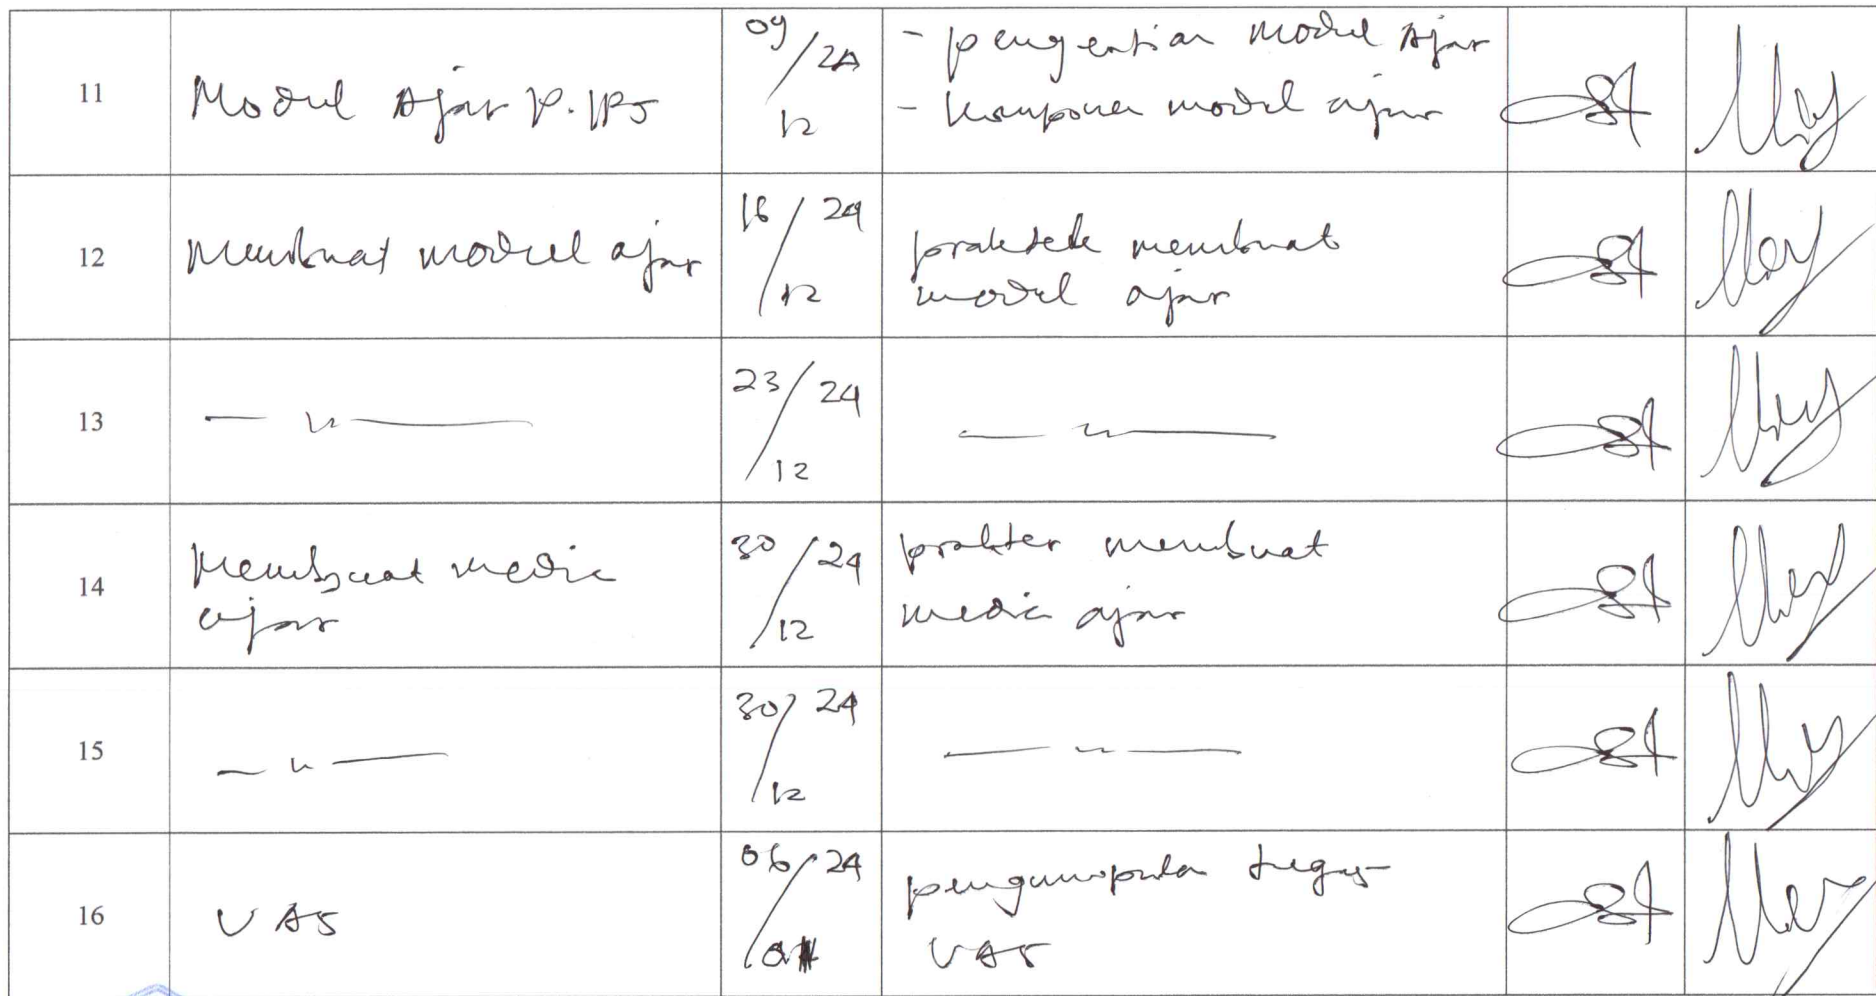 11
Modul Ajar P. IPS
09/24
12
- pengertian modul Ajar
- komponen modul ajar
12
Membuat modul ajar
16/24
12
praktek membuat
modul ajar
13
— 〃 —
23/24
12
— 〃 —
14
Membuat media
ajar
30/24
12
praktek membuat
media ajar
15
— 〃 —
30/24
12
— 〃 —
16
UAS
06/24
pengumpulan tugas
UAS